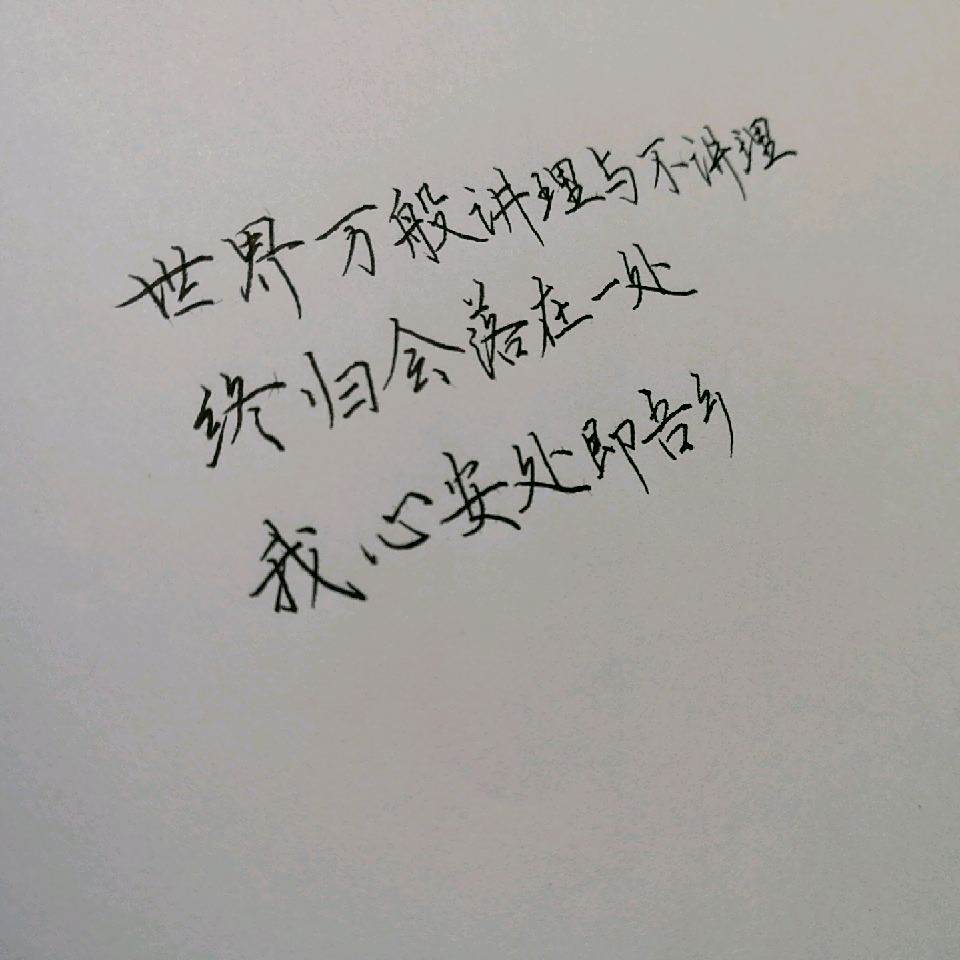 世界万般讲理与不讲理
终归会落在一处
我心安处即吾乡